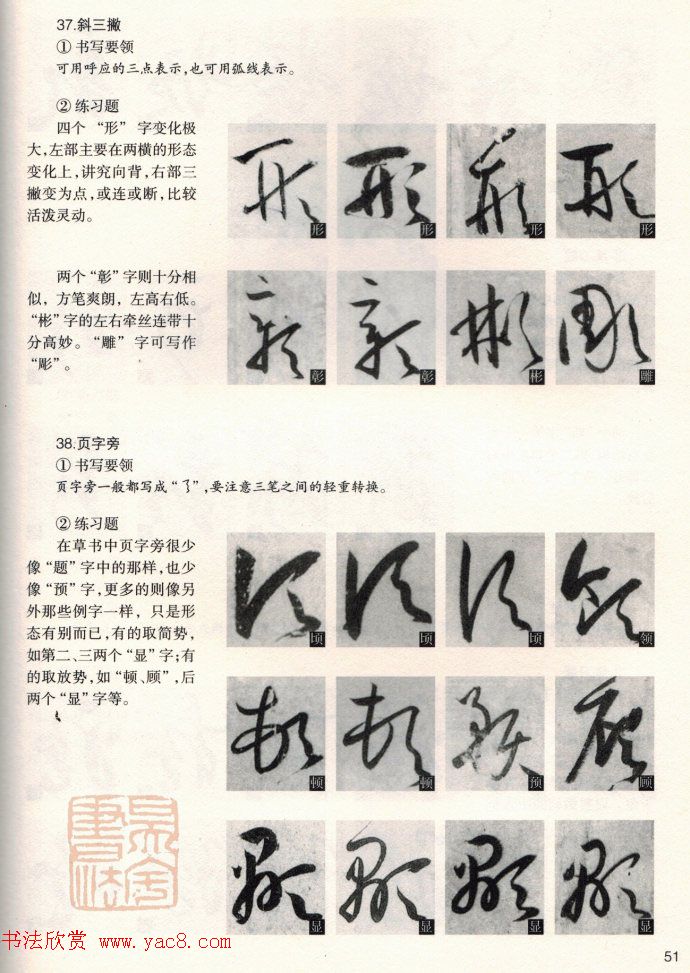 37.斜三撇
① 书写要领
可用呼应的三点表示,也可用弧线表示。
② 练习题
四个 “形” 字变化极
大,左部主要在两横的形态
变化上,讲究向背,右部三
撇变为点,或连或断,比较
活泼灵动。
形 形 形 形
两个“彰”字则十分相
似, 方笔爽朗, 左高右低。
“彬”字的左右牵丝连带十
分高妙。“雕” 字可写作
“彫”。
彰 彰 彬 雕
38.页字旁
① 书写要领
页字旁一般都写成“ ”,要注意三笔之间的轻重转换。
② 练习题
在草书中页字旁很少
像“题”字中的那样,也少
像“预”字,更多的则像另
外那些例字一样, 只是形
态有别而已,有的取简势,
如第二、三两个“显”字;有
的取放势,如“顿、顾”,后
两个“显”字等。
顷 顷 顷 领
顿 顿 预 顾
显 显 显 显
书法欣赏 www.yac8.com
51